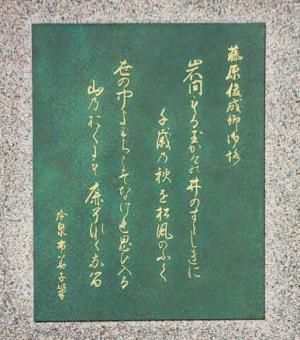 藤原俊成卿御詠
岩間もる玉かけの井のすゝしきに
千歳乃秋を松風のふく
世の中よみちこそなけれ思ひ入る
山乃おくにも鹿そなくなる
冷泉布美子筆